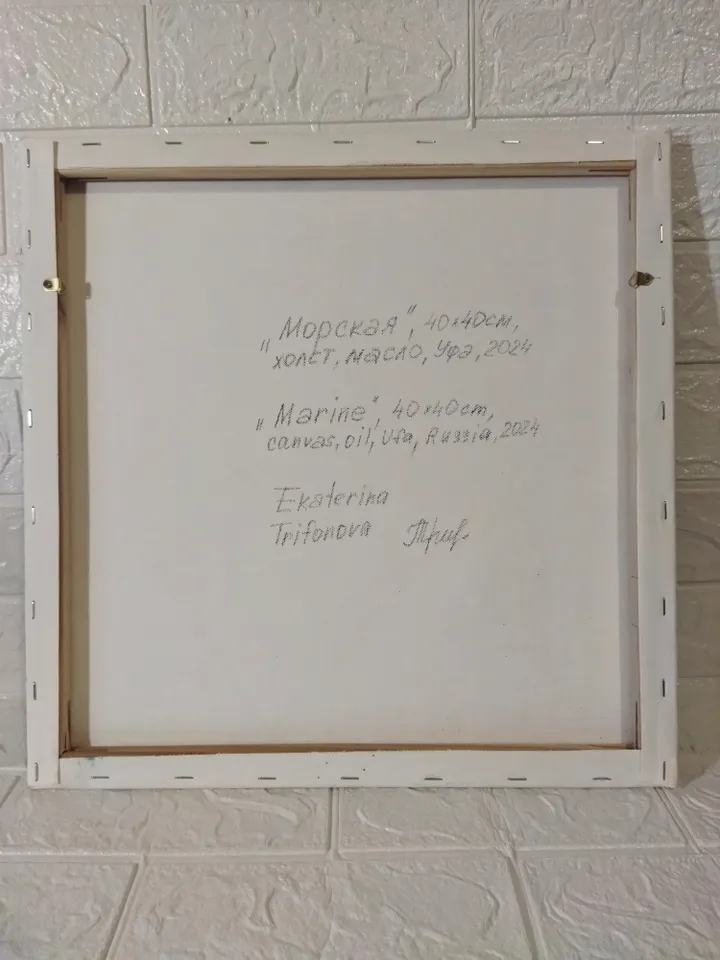 „Морская", 40×40см,
холст, масло, Уфа, 2024
„Marine", 40×40cm,
canvas, oil, Ufa, Russia, 2024
Ekaterina
Trifonova Триф